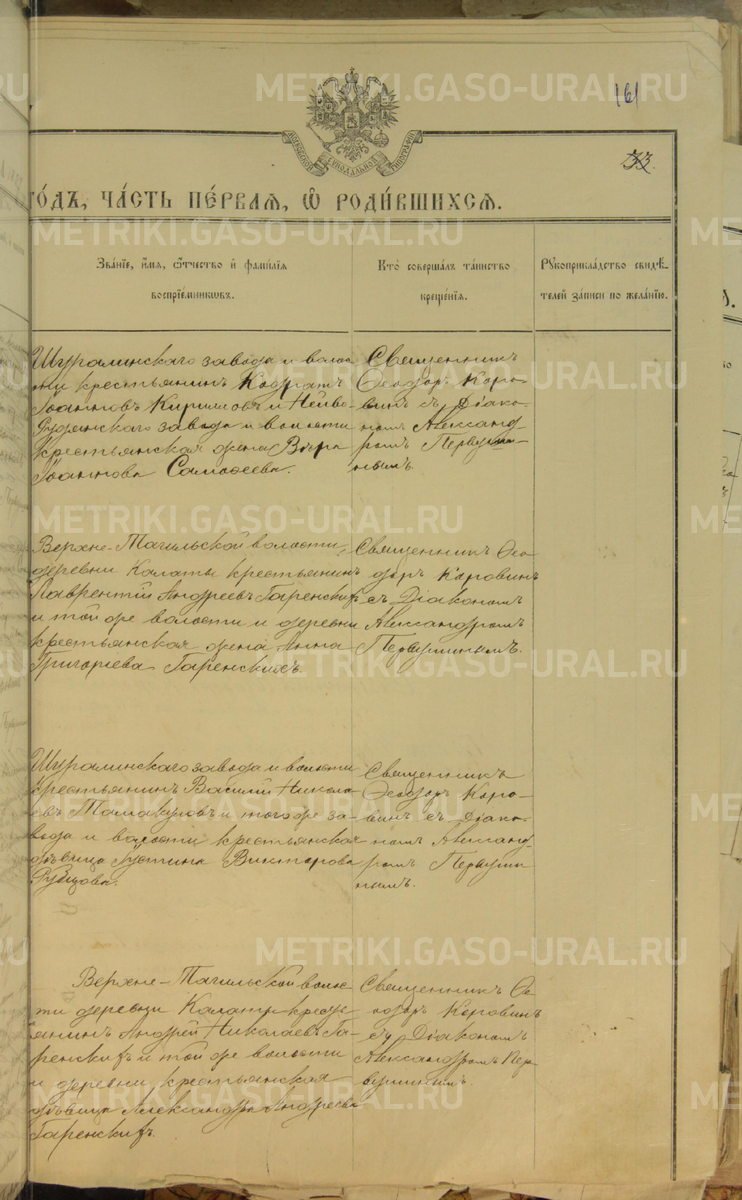 161
МОСКОВСКОЙ СѴНОДАЛЬНОЙ ТИПОГРАФІИ
33
ГО́ДЪ, ЧА́СТЬ ПЕ́РВАЯ, Ѽ РОДИ́ВШИХСЯ.
Зва́нїе, и҆́мѧ, ѻ҆́тчество и҆ фамі́лїѧ
воспрїе́мникѡвъ.
Кто̀ соверша́лъ та́инство
креще́нїѧ.
Рꙋкоприкла́дство свидѣ́-
телей за́писи по жела́нїю.
Шуралинскаго завода и волос
ти крестьянинъ Кодратъ
Іоанновъ Кириловъ и Нейво-
Рудянскаго завода и волости
крестьянская жена Вѣра
Іоаннова Самофеева.
Священникъ
Ѳеодоръ Коро-
винъ съ Діако-
номъ Александ-
ромъ Первуши-
нымъ.
Верхне-Тагильской волости,
деревни Калаты крестьянинъ
Лаврентій Андреевъ Гаренскихъ
и той же волости и деревни
крестьянская жена Анна
Григорьева Гаренскихъ.
Священникъ Ѳео-
доръ Коровинъ
съ Діакономъ
Александромъ
Первушинымъ.
Шуралинскаго завода и волости
крестьянинъ Василій Никола-
евъ Тамакуловъ и того же за-
вода и волости крестьянская
дѣвица Устина Викторова
Рубцова.
Священникъ
Ѳеодоръ Коро-
винъ съ Діако-
номъ Александ-
ромъ Первуши-
нымъ.
Верхне-Тагильской волос-
ти деревни Калаты кресть-
янинъ Андрей Николаевъ Га-
ренскихъ и той же волости
и деревни, крестьянская
дѣвица Александра Андреева
Гаренскихъ.
Священникъ Ѳе-
одоръ Коровинъ
съ Діакономъ
Александромъ Пер-
вушинымъ.
METRIKI.GASO-URAL.RU
METRIKI.GASO-URAL.RU
METRIKI.GASO-URAL.RU
METRIKI.GASO-URAL.RU
METRIKI.GASO-URAL.RU
METRIKI.GASO-URAL.RU
METRIKI.GASO-URAL.RU
METRIKI.GASO-URAL.RU